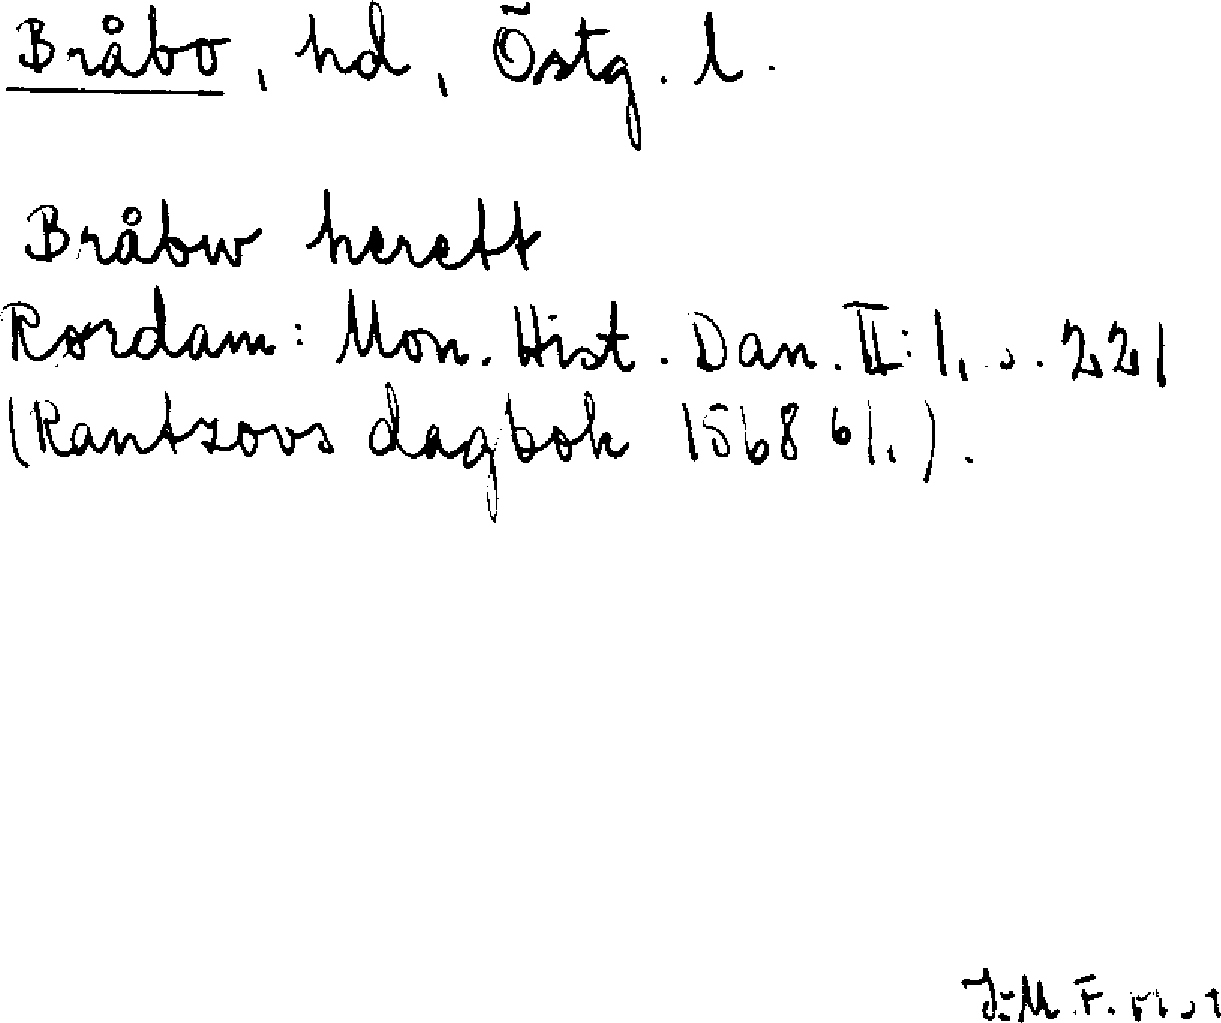 Bråbo, hd, Östg. l.
Bråbw herett
Rørdam: Mon. Hist. Dan. II:1, s. 221
(Rantzovs dagbok 1568 6/1.).